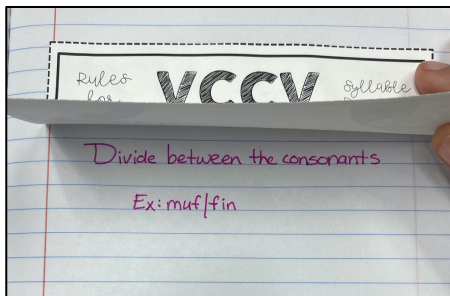 Rules VCCV syllable
for
Divide between the consonants
Ex: muf/fin